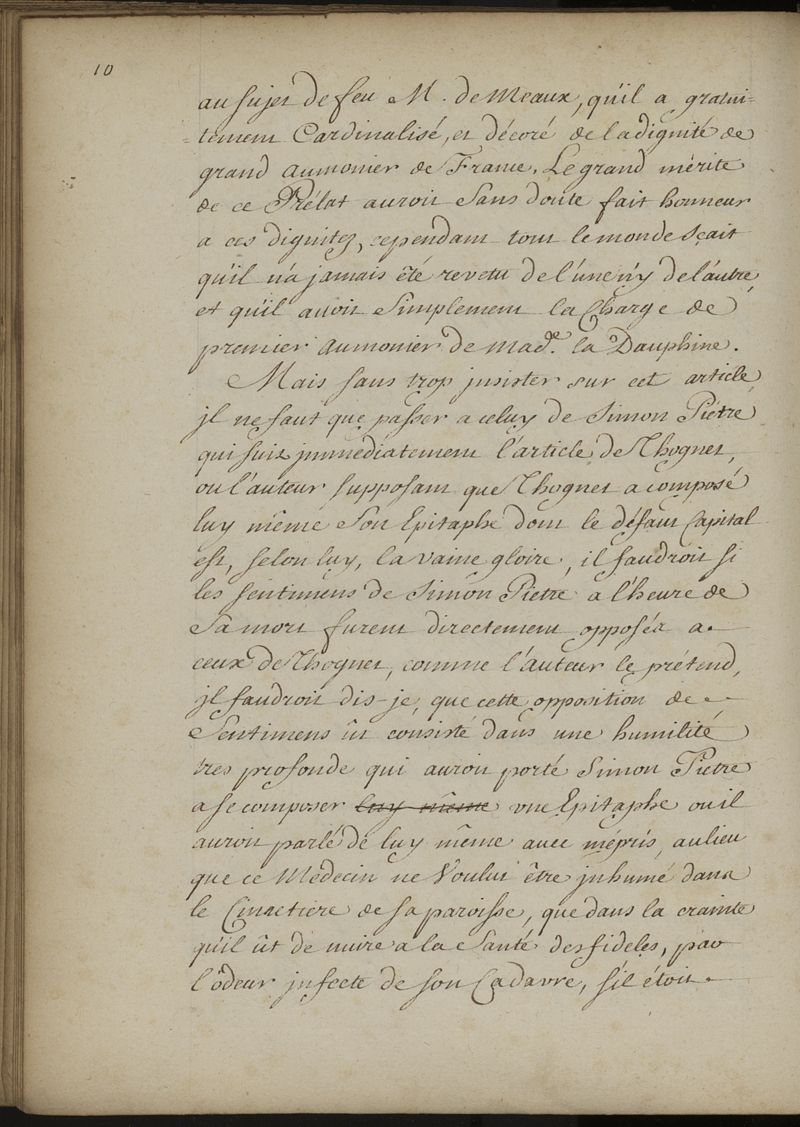 10
au sujet de feu M. de Meaux, qu'il a gratui=
=tement Cardinalisé, et décoré de la dignité de
grand aumonier de France. Le grand mérite
de ce Prélat auroit sans doute fait honneur
a ces dignitez, cependant tout le monde sçait
qu'il n'a jamais été revetu de l'une n'y de l'autre,
et qu'il avoit simplement la Charge de
premier aumonier de Mad.e la Dauphine.
Mais sans trop insister sur cet article,
jl ne faut que passer a celuy de Simon Piétre
qui suit jmmédiatement l'article de Thognet,
ou l'auteur supposant que Thognet a composé
luy même son Epitaphe dont le défaut Capital
est, selon luy, la vaine gloire, il faudroit si
les sentimens de Simon Pietre a l'heure de
sa mort furent directement opposés a
ceux de Thognet, comme l'auteur le prétend,
jl faudroit dis-je, que cette opposition de
Sentimens ût consisté dans une humilité
tres profonde qui auroit porté Simon Pietre
a se composer luy même une Epitaphe ou il
auroit parlé de luy même avec mépris, au lieu
que ce Médecin ne Voulut être jnhumé dans
le Cimetiere de sa paroisse, que dans la crainte
qu'il ût de nuire a la Santé des fideles, par
l'ôdeur jnfecte de son Cadavre, s'il étoit